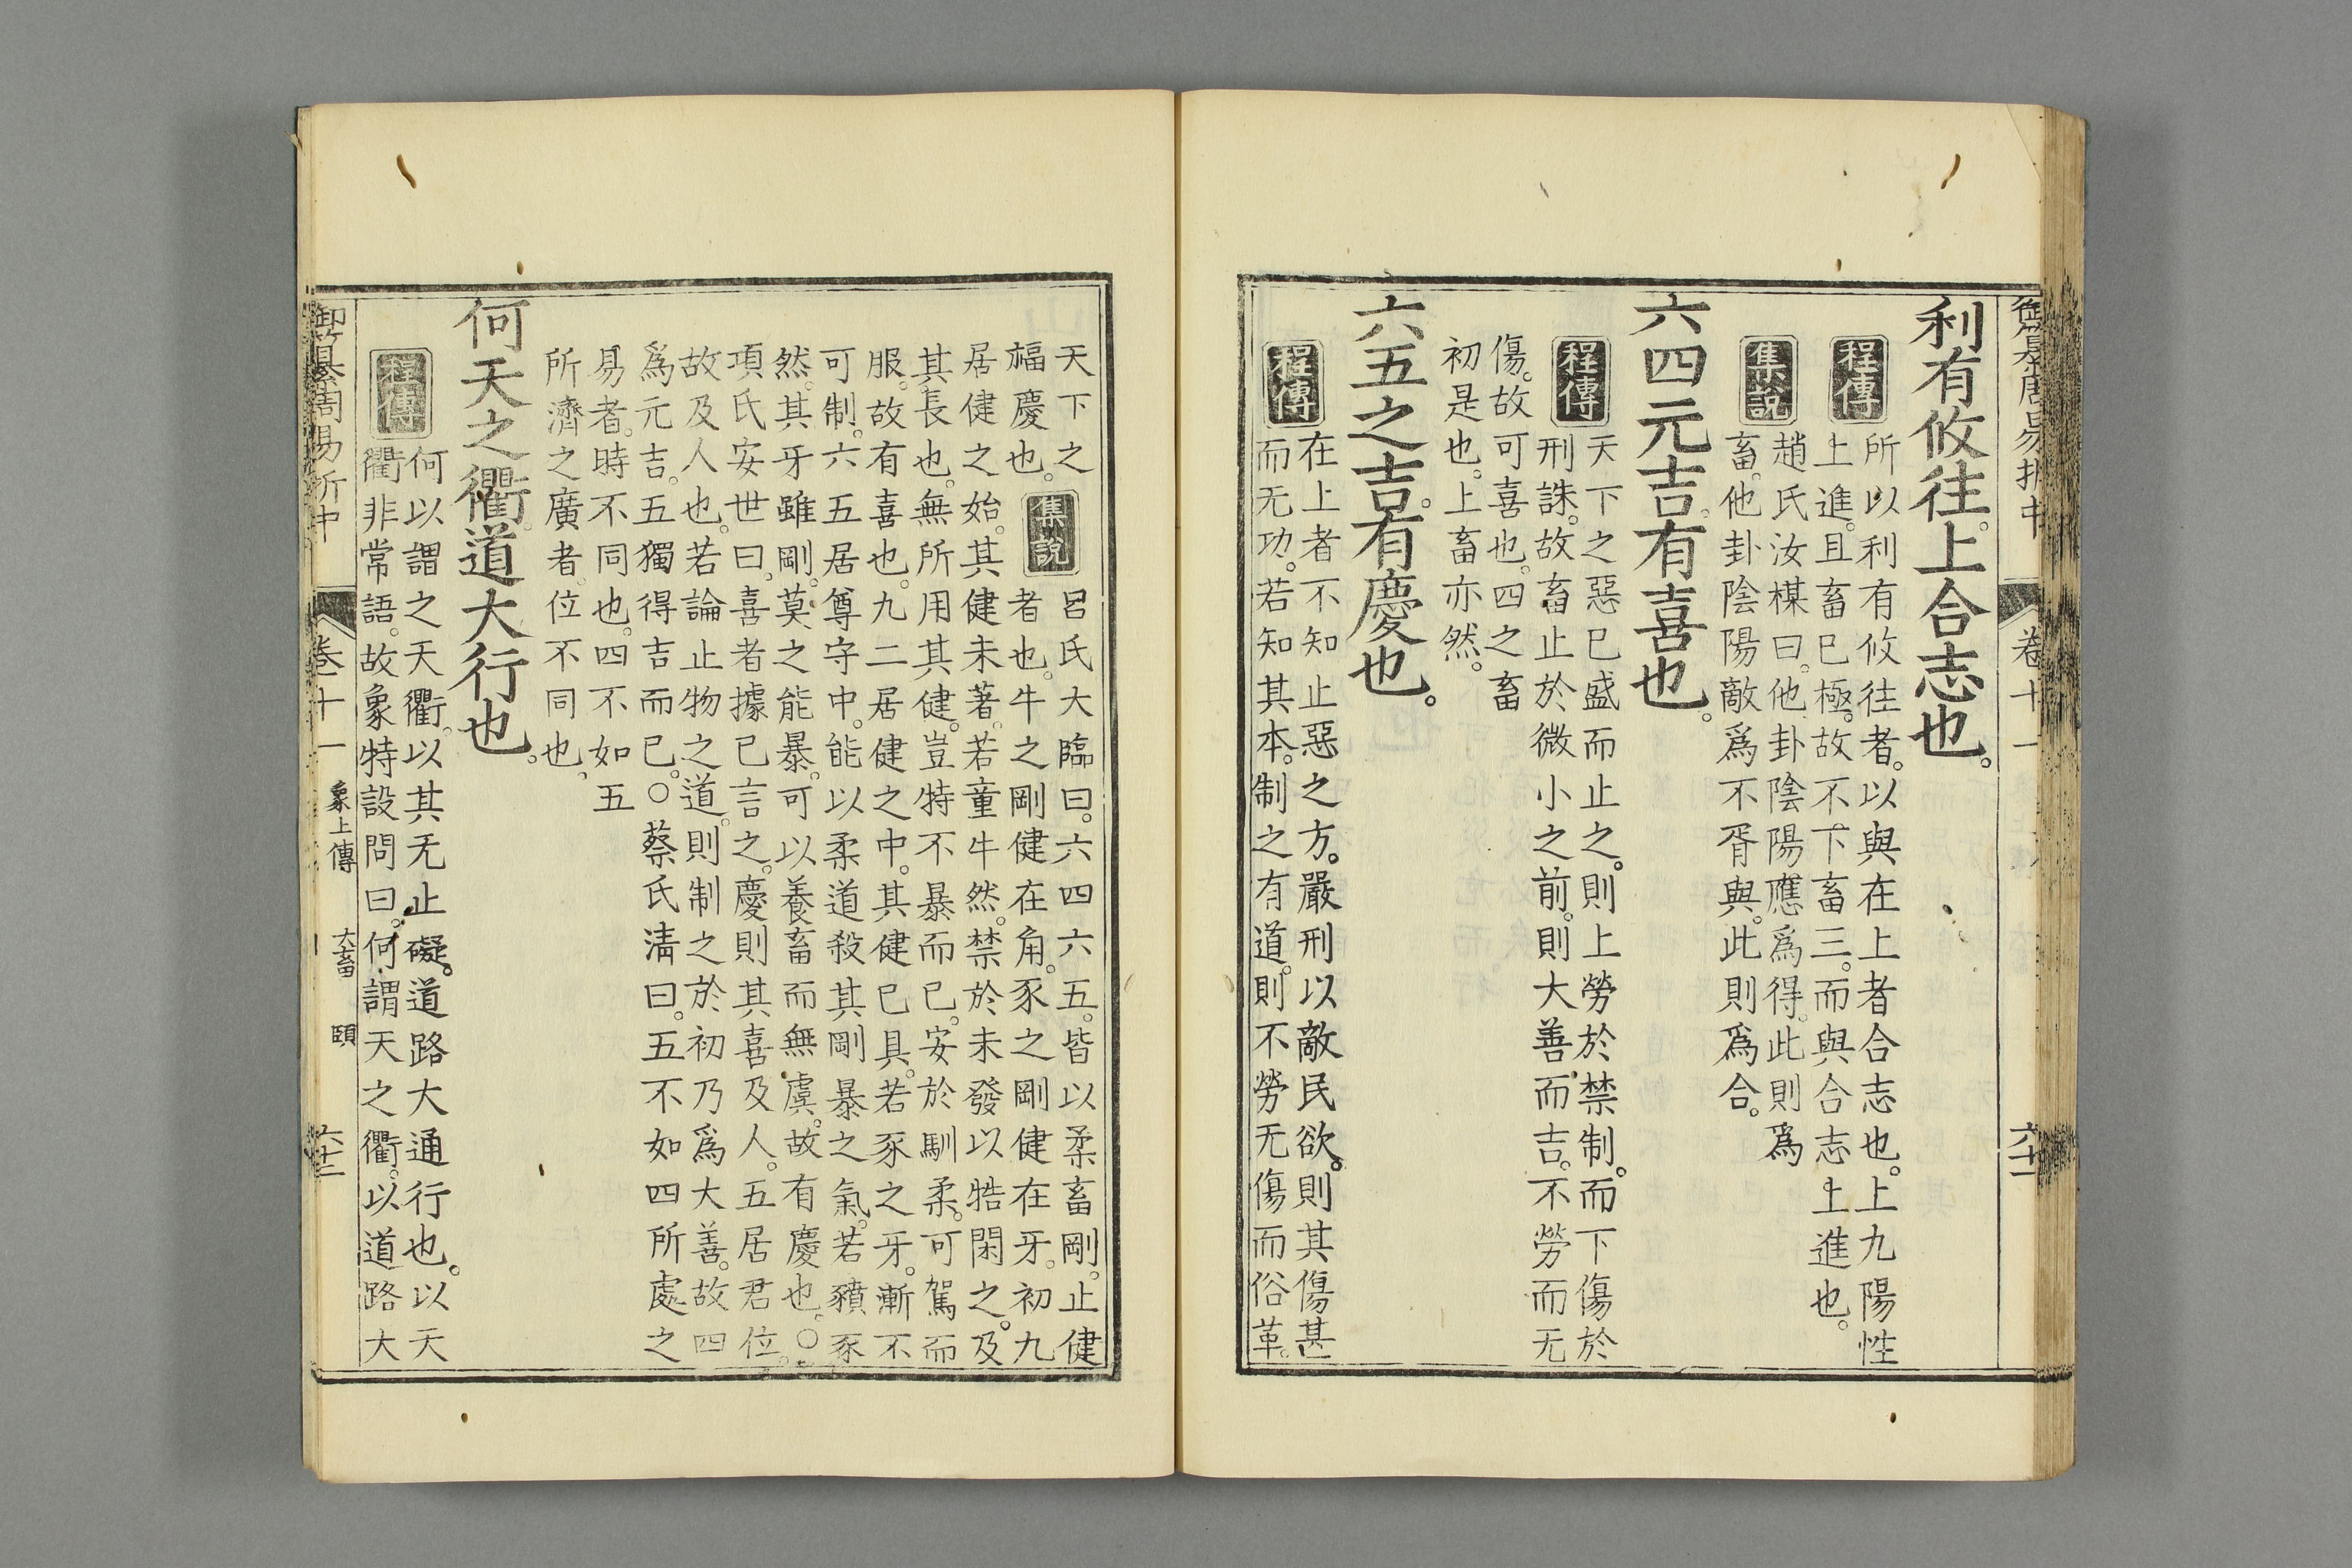 御纂周易折中 卷十一 六十一
利有攸往。上合志也。
程傳 所以利有攸往者。以與在上者合志也。上九陽性
上進。且畜已極。故不下畜三。而與合志上進也。
集說 趙氏汝楳曰。他卦陰陽應爲得。此則爲
畜。他卦陰陽敵爲不胥與。此則爲合。
六四元吉。有喜也。
程傳 天下之惡已盛而止之。則上勞於禁制。而下傷於
刑誅。故畜止於微小之前。則大善而吉。不勞而无
傷。故可喜也。四之畜
初是也。上畜亦然。
六五之吉。有慶也。
程傳 在上者不知止惡之方。嚴刑以敵民欲。則其傷甚
而无功。若知其本。制之有道。則不勞无傷而俗革。
天下之
福慶也。
集說 呂氏大臨曰。六四六五。皆以柔畜剛。止健
者也。牛之剛健在角。豕之剛健在牙。初九
居健之始。其健未著。若童牛然。禁於未發以牿閑之。及
其長也。無所用其健。豈特不暴而已。安於馴柔。可駕而
服。故有喜也。九二居健之中。其健已具。若豕之牙。漸不
可制。六五居尊守中。能以柔道殺其剛暴之氣。若豶豕
然。其牙雖剛。莫之能暴。可以養畜而無虞。故有慶也。○
項氏安世曰。喜者據已言之。慶則其喜及人。五居君位。
故及人也。若論止物之道。則制之於初乃爲大善。故四
爲元吉。五獨得吉而已。○蔡氏淸曰。五不如四所處之
易者。時不同也。四不如五
所濟之廣者。位不同也。
何天之衢。道大行也。
程傳 何以謂之天衢。以其无止礙。道路大通行也。以天
衢非常語。故象特設問曰。何謂天之衢。以道路大
御纂周易折中 卷十一 象上傳 大畜 頤 六十二